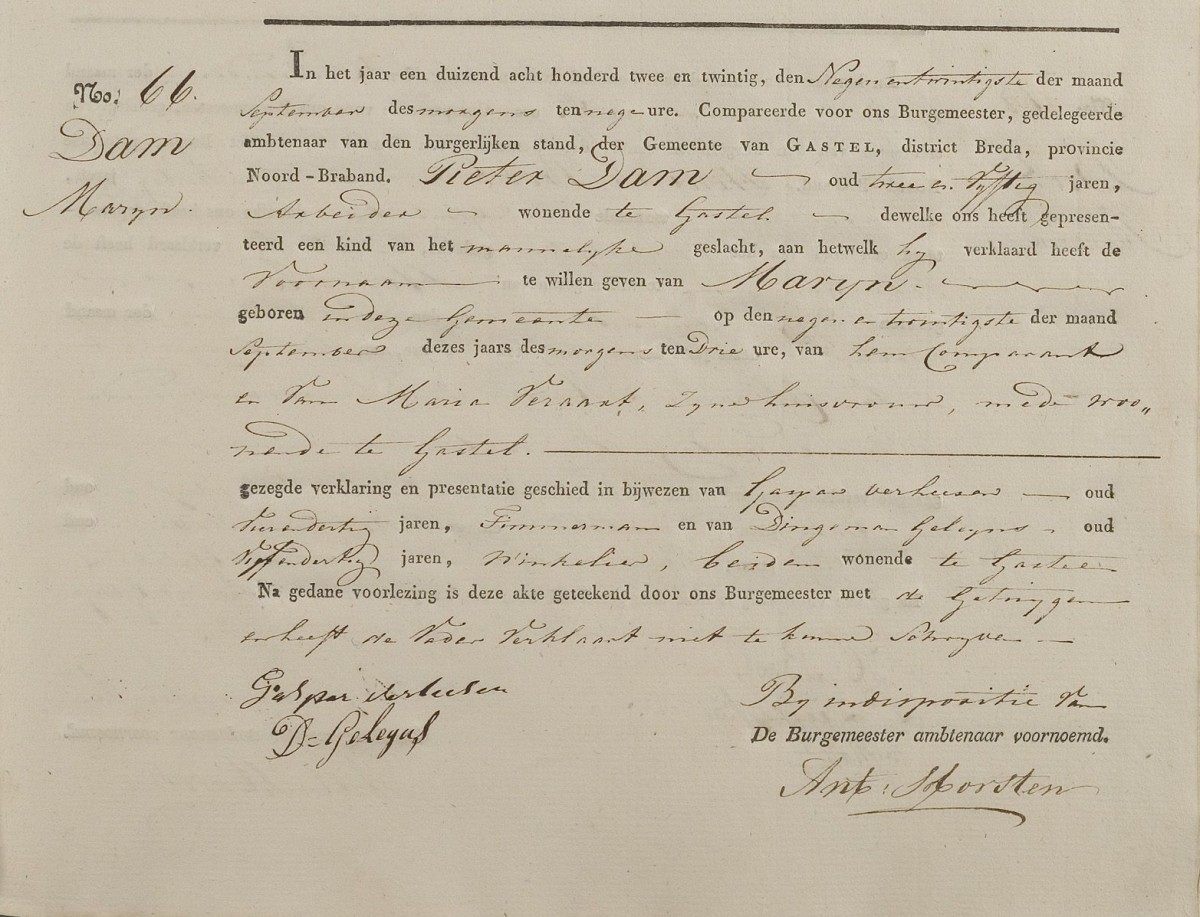 No: 66.
Dam
Maryn.
In het jaar een duizend acht honderd twee en twintig, den Negenentwintigste der maand
September des morgens ten nege ure. Compareerde voor ons Burgemeester, gedelegeerde
ambtenaar van den burgerlijken stand, der Gemeente van GASTEL, district Breda, provincie
Noord-Braband. Pieter Dam oud twee en Vyftig jaren,
Arbeider wonende te Gastel. dewelke ons heeft gepresen-
teerd een kind van het mannelyke geslacht, aan hetwelk hy verklaard heeft de
Voornaam te willen geven van Maryn.
geboren in deze Gemeente op den negen en twintigste der maand
September dezes jaars des morgens ten Drie ure, van hem Comparant
en Van Maria Veraart, Zyne huisvrouw, mede woo„
nende te Gastel.
gezegde verklaring en presentatie geschied in bijwezen van Gaspar verheesen oud
Vierendertig jaren, Timmerman en van Dingeman Geleyns oud
Vyfendertig jaren, Winkelier, beiden wonende te Gastel
Na gedane voorlezing is deze akte geteekend door ons Burgemeester met de Getuygen
en heeft de Vader Verklaart niet te kunne Schryve
Gaspar verheesen
D= Geleyns
By indispositie Van
De Burgemeester ambtenaar voornoemd.
Ant: